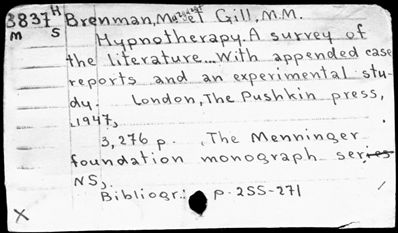 3837 H Brenman, Margaret Gill, M.M.
m S Hypnotherapy. A survey of
the literature... With appended case
reports and an experimental stu-
dy. London, The Pushkin press,
1947,
3, 276 p. The Menninger
foundation monograph series
NS,
Bibliogr.: p. 255-271
X